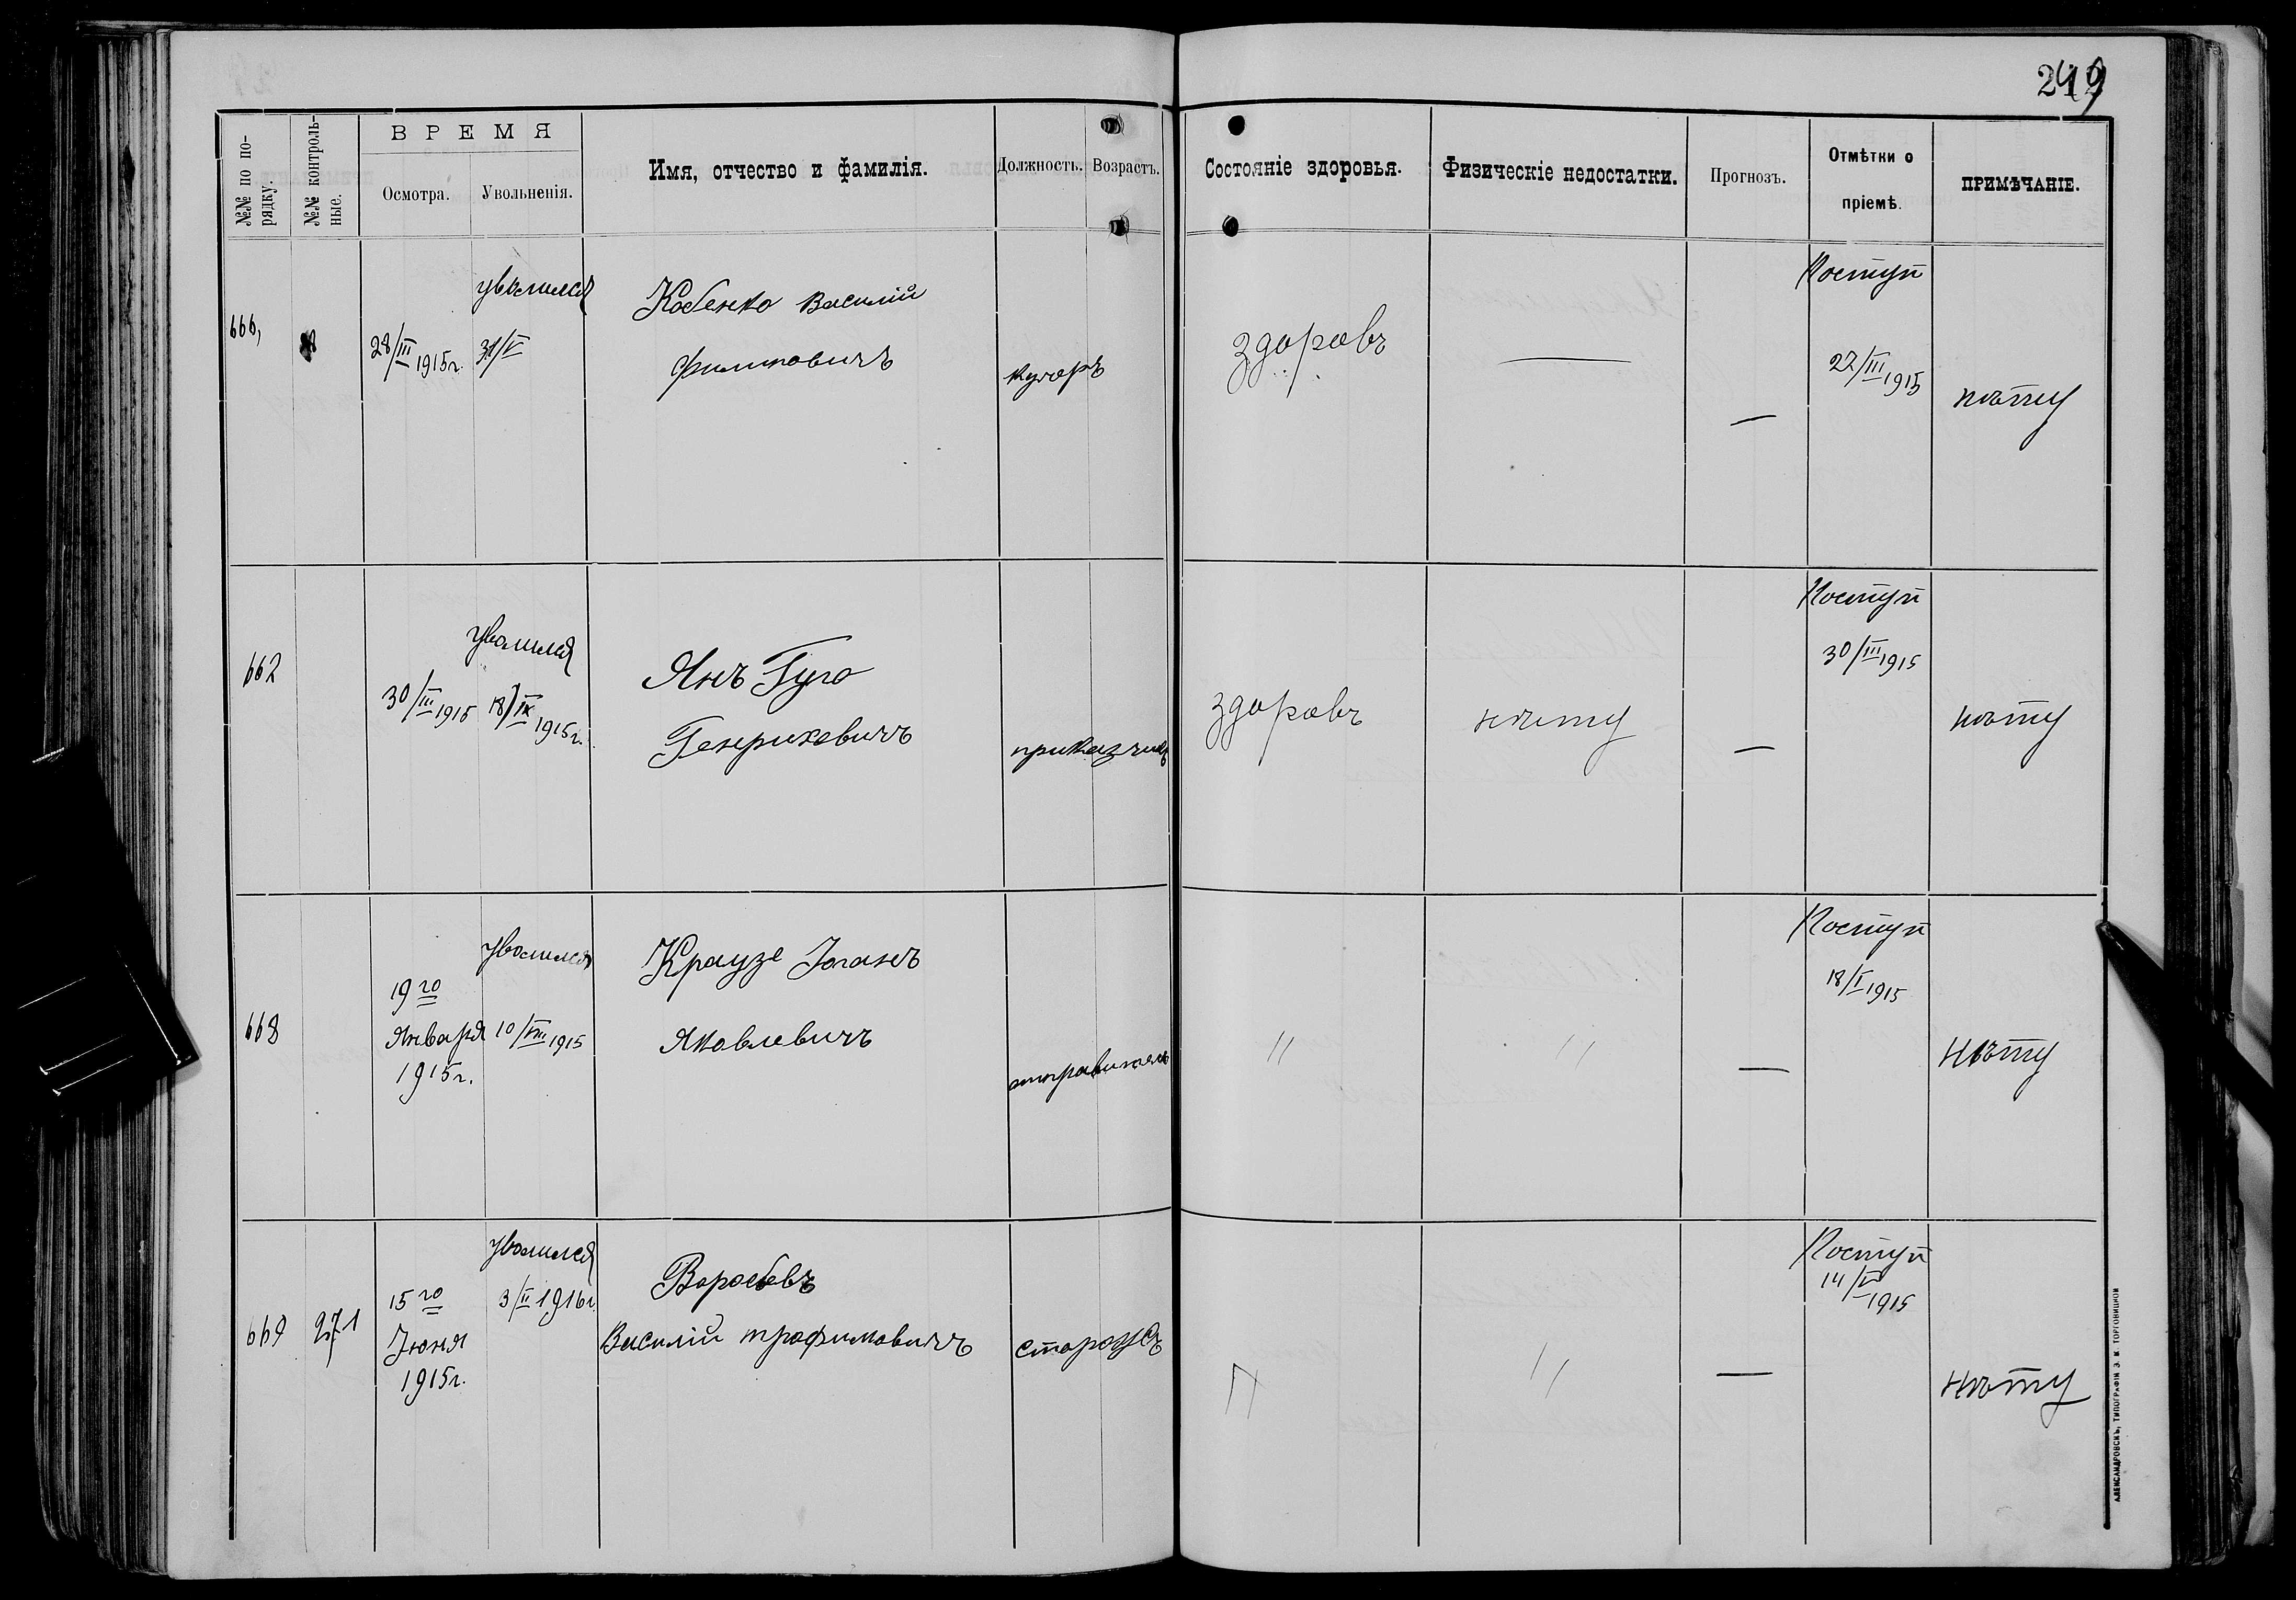 249
№№ по по-
рядку.
№№ контроль-
ные.
ВРЕМЯ
Осмотра.
Увольненія.
Имя, отчество и фамилія.
Должность.
Возрастъ.
Состояніе здоровья.
Физическіе недостатки.
Прогнозъ.
Отмѣтки о
пріемѣ.
ПРИМѢЧАНІЕ.
666,
28/III 1915г.
уволился
31/V
Кобенко Василій
Филиповичъ
кучеръ
здоровъ
—
—
Поступ
27/III 1915
нѣту
662
30/III 1915
уволился
18/IX 1915г.
Янъ Гуго
Генриховичъ
приказчикъ
здоровъ
нѣту
—
Поступ
30/III 1915
нѣту
668
19го
Января
1915г.
уволился
10/VIII 1915
Краузе Іоганъ
Яковлевичъ
отправитель
"
"
—
Поступ
18/I 1915
нѣту
669
271
15го
Іюня
1915г.
уволился
3/II 1916г.
Воробевъ
Василій трофимовичъ
сторожъ
"
"
—
Поступ
14/VI
1915
нѣту
АЛЕКСАНДРОВСКЪ, ТИПОГРАФІЯ Э. И. ТОРГОВИЦКОЙ